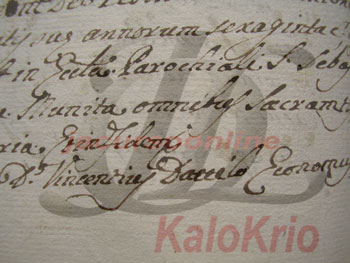 annorum sexaginta
in Eccla Parochiale S. Seba
Munita omnibus Sacramtis
in fidem
Dr. Vincentius Danilo Economus
online
KaloKrio